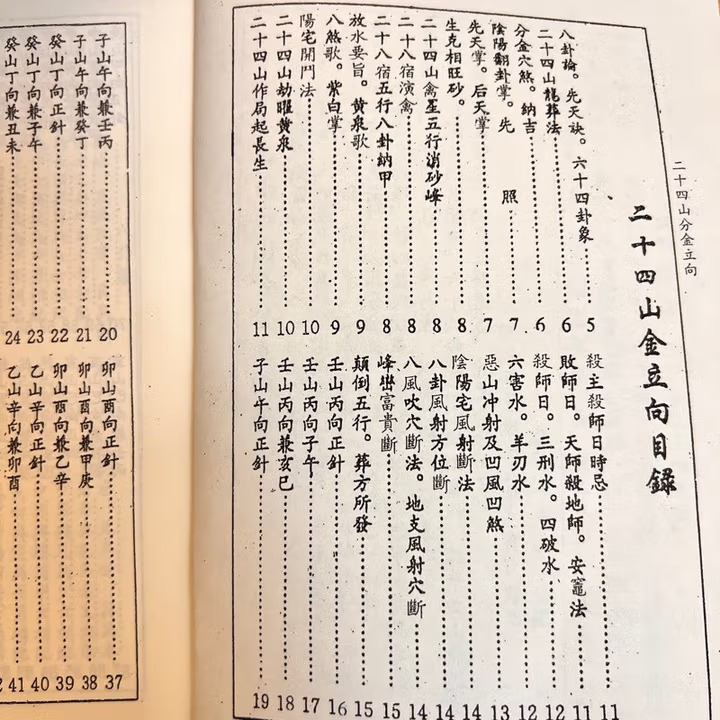 二十四山分金立向
二十四山金立向目錄
八卦論。先天訣。六十四卦象 5
二十四山龍葬法 6
分金穴煞。納吉 6
陰陽翻卦掌。先 照 7
先天掌。后天掌 7
生克相旺砂。 8
二十四山禽星五行消砂峰 8
二十八宿演禽 8
二十八宿五行八卦納甲 8
放水要旨。黄泉歌 9
八煞歌。紫白掌 9
陽宅開門法 10
二十四山劫曜黄泉 10
二十四山作局起長生 11
殺主殺師日時忌 11
敗師日。天師殺地師。安竈法 11
殺師日。三刑水。四破水 12
六害水。羊刃水 12
惡山冲射及凹風凹煞 13
陰陽宅風射斷法 14
八卦風射方位斷 14
八風吹穴斷法。地支風射穴斷 14
峰巒富貴斷 15
顛倒五行。葬方所發 15
壬山丙向正針 16
壬山丙向子午 17
壬山丙向兼亥巳 18
子山午向正針 19
子山午向兼壬丙 20
子山午向兼癸丁 21
癸山丁向正針 22
癸山丁向兼子午 23
癸山丁向兼丑未 24
卯山酉向正針 37
卯山酉向兼甲庚 38
卯山酉向兼乙辛 39
乙山辛向正針 40
乙山辛向兼卯酉 41